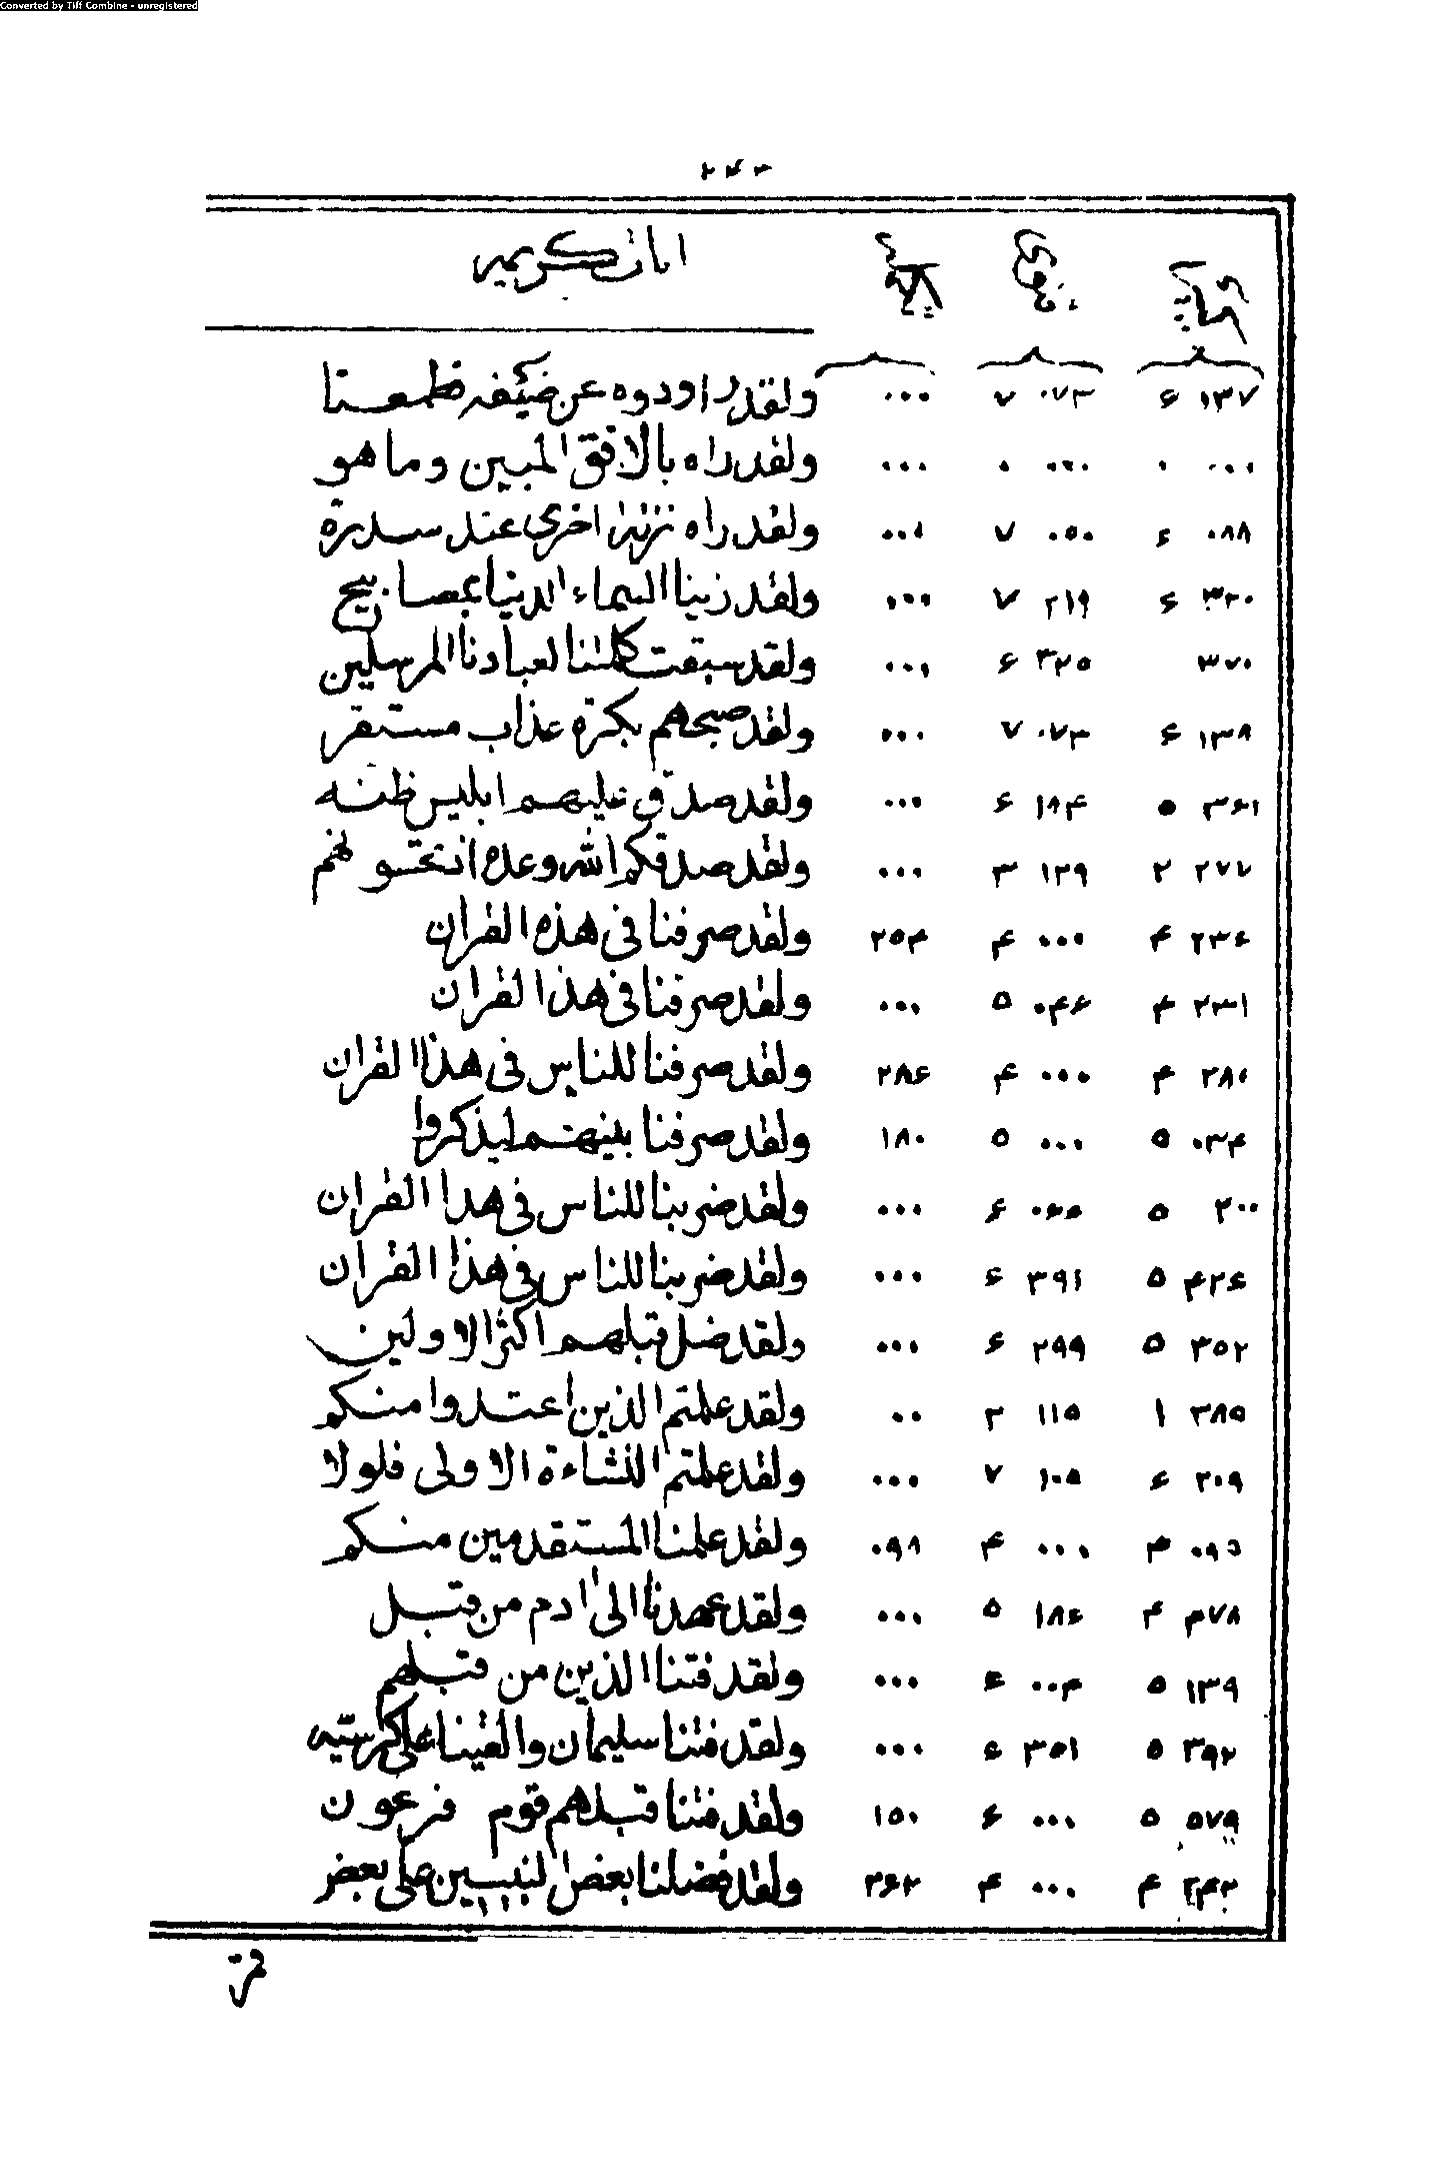 Converted by Tiff Combine - unregistered
۲۴۳
ايات كريمه
۱۳۷ ۶ ۰۷۳ ۷ ۰۰۰ ولقد راودوه عن ضيفه فطمسنا
۰۰۰ ۰ ۰۰۰ ۰ ۰۰۰ ولقد راه بالافق المبين وما هو
۰۸۸ ۶ ۰۵۰ ۷ ۰۰۰ ولقد راه نزلة اخرى عند سدرة
۳۲۰ ۶ ۲۱۹ ۷ ۰۰۰ ولقد زينا السماء الدنيا بمصابيح
۳۷۰ ۳۲۵ ۶ ۰۰۰ ولقد سبقت كلمتنا لعبادنا المرسلين
۱۳۸ ۶ ۰۷۳ ۷ ۰۰۰ ولقد صبحهم بكرة عذاب مستقر
۳۶۱ ۵ ۱۸۴ ۶ ۰۰۰ ولقد صدق عليهم ابليس ظنه
۲۷۷ ۲ ۱۳۹ ۳ ۰۰۰ ولقد صدقكم الله وعده اذ تحسونهم
۲۳۶ ۴ ۰۰۰ ۴ ۲۵۴ ولقد صرفنا فى هذه القران
۲۳۱ ۴ ۰۴۶ ۵ ۰۰۰ ولقد صرفنا فى هذا القران
۲۸۰ ۴ ۰۰۰ ۴ ۲۸۶ ولقد صرفنا للناس فى هذا القران
۰۳۴ ۵ ۰۰۰ ۵ ۱۸۰ ولقد صرفنا بينهم ليذكروا
۲۰۰ ۵ ۰۶۵ ۶ ۰۰۰ ولقد ضربنا للناس فى هذا القران
۴۲۶ ۵ ۳۹۱ ۶ ۰۰۰ ولقد ضربنا للناس فى هذا القران
۳۵۲ ۵ ۲۹۹ ۶ ۰۰۰ ولقد ضل قبلهم اكثر الاولين
۳۸۵ ۱ ۱۱۵ ۲ ۰۰ ولقد علمتم الذين اعتدوا منكم
۲۰۹ ۶ ۱۰۵ ۷ ۰۰۰ ولقد علمتم النشاءة الاولى فلولا
۰۹۵ ۴ ۰۰۰ ۴ ۰۹۸ ولقد علمنا المستقدمين منكم
۴۷۸ ۴ ۱۸۶ ۵ ۰۰۰ ولقد عهدنا الى ادم من قبل
۱۳۹ ۵ ۰۰۴ ۶ ۰۰۰ ولقد فتنا الذين من قبلهم
۳۹۲ ۵ ۳۵۱ ۶ ۰۰۰ ولقد فتنا سليمان والقينا على كرسيه
۵۷۹ ۵ ۰۰۰ ۶ ۱۵۰ ولقد فتنا قبلهم قوم فرعون
۲۴۲ ۴ ۰۰۰ ۴ ۳۶۲ ولقد فضلنا بعض النبيين على بعض